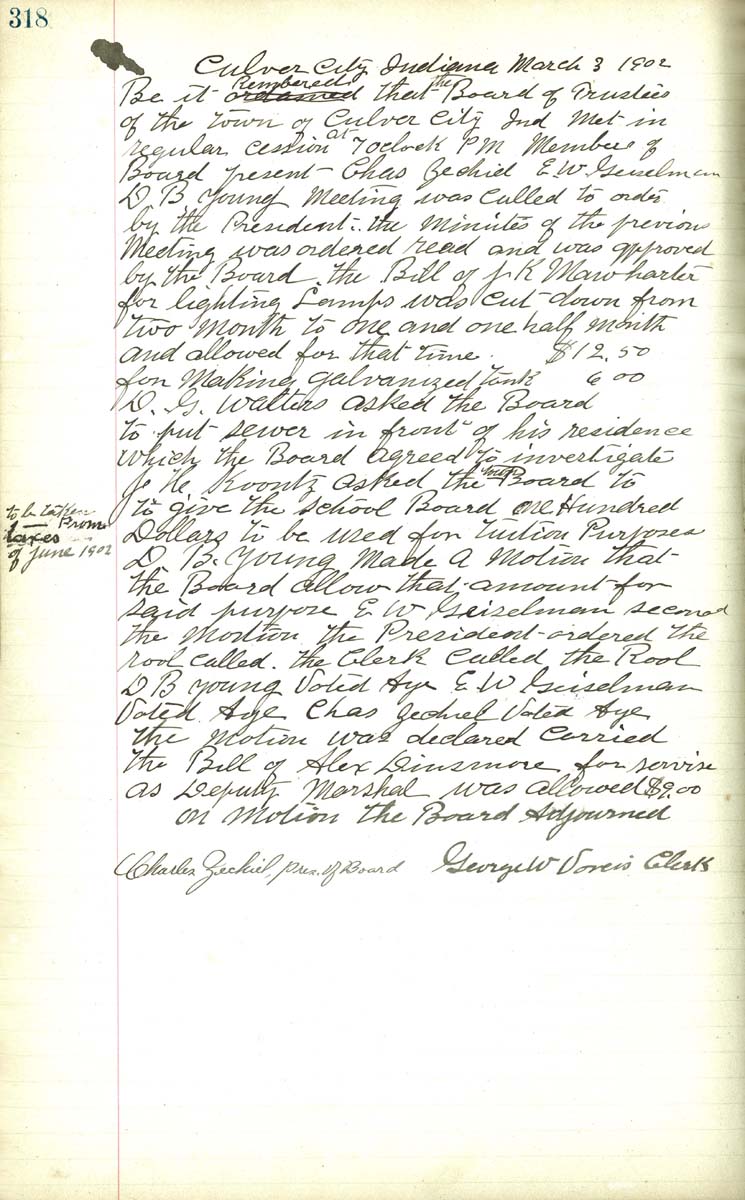 318
Culver City Indiana March 3 1902
Be it ordained Rembered that the Board of Trustees
of the Town of Culver City Ind Met in
regular Cession at 7 oclock PM Members of
Board present Chas Zechiel E. W. Geiselman
D B Young Meeting was called to order
by the President. the minutes of the previous
Meeting was ordered read and was approved
by the Board. the Bill of J. K Mawhorter
for lighting Lamps was cut down from
two Month to one and one half month
and allowed for that time. $12.50
for Making galvanized tank 6 00
D. G. Walters asked the Board
to put sewer in front of his residence
which the Board agreed to investigate
H. Koontz asked the Board to
to give the school Board one Hundred
to be taken
From
taxes
of June 1902
Dollars to be used for Tuition Purposes
D. B. Young Made a Motion that
the Board allow that amount for
said purpose E W Geiselman second
the Motion the President ordered the
rool called. the Clerk Called the Rool
D B Young Voted Aye E W Geiselman
Voted Aye Chas Zechiel Voted Aye
the Motion was declared Carried
the Bill of Alex Dinsmore for servise
as Deputy Marshal was allowed $9.00
on Motion the Board Adjourned
Charles Zechiel, Pres. of Board George W Voreis Clerk